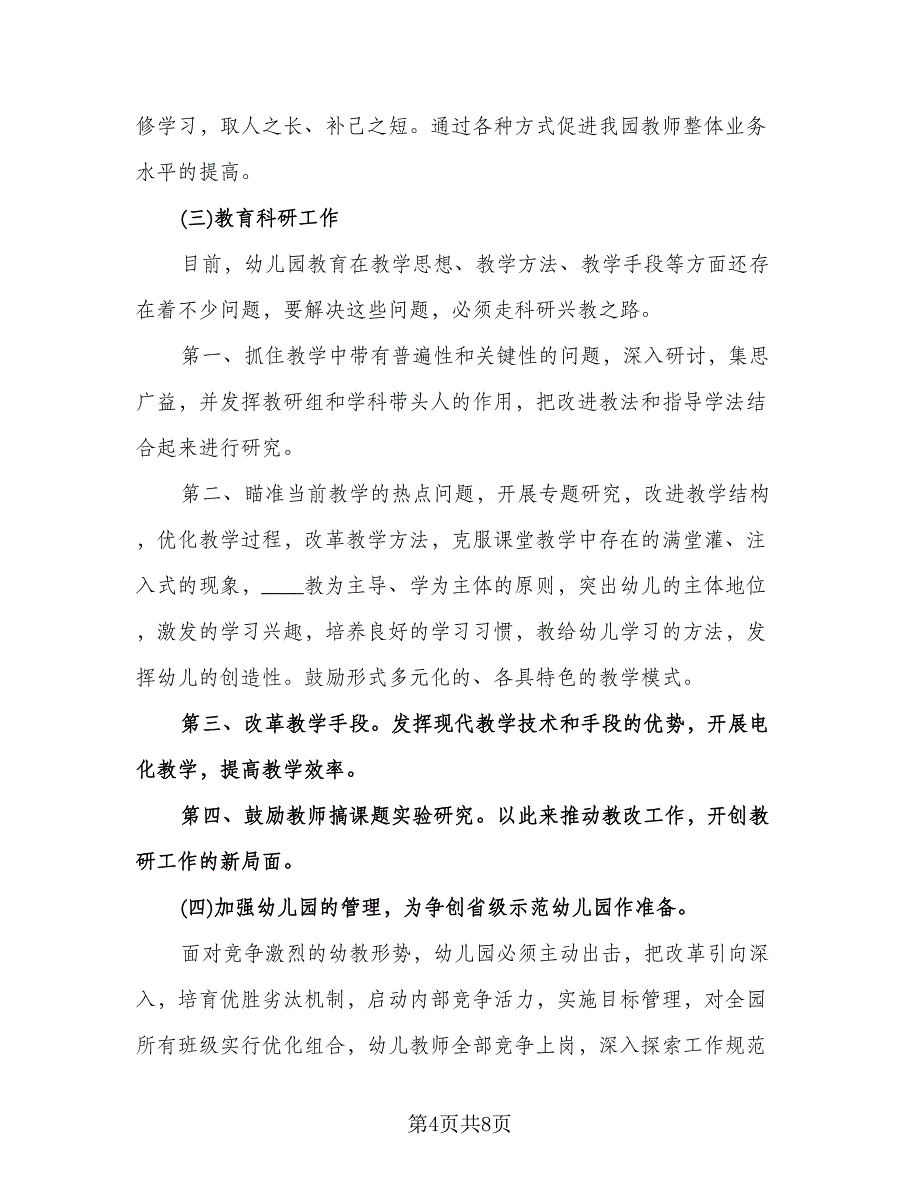 修学习，取人之长、补己之短。通过各种方式促进我园教师整体业务
水平的提高。
(三)教育科研工作
目前，幼儿园教育在教学思想、教学方法、教学手段等方面还存
在着不少问题，要解决这些问题，必须走科研兴教之路。
第一、抓住教学中带有普遍性和关键性的问题，深入研讨，集思
广益，并发挥教研组和学科带头人的作用，把改进教法和指导学法结
合起来进行研究。
第二、瞄准当前教学的热点问题，开展专题研究，改进教学结构
，优化教学过程，改革教学方法，克服课堂教学中存在的满堂灌、注
入式的现象，____教为主导、学为主体的原则，突出幼儿的主体地位
，激发的学习兴趣，培养良好的学习习惯，教给幼儿学习的方法，发
挥幼儿的创造性。鼓励形式多元化的、各具特色的教学模式。
第三、改革教学手段。发挥现代教学技术和手段的优势，开展电
化教学，提高教学效率。
第四、鼓励教师搞课题实验研究。以此来推动教改工作，开创教
研工作的新局面。
(四)加强幼儿园的管理，为争创省级示范幼儿园作准备。
面对竞争激烈的幼教形势，幼儿园必须主动出击，把改革引向深
入，培育优胜劣汰机制，启动内部竞争活力，实施目标管理，对全园
所有班级实行优化组合，幼儿教师全部竞争上岗，深入探索工作规范
第4页共8页